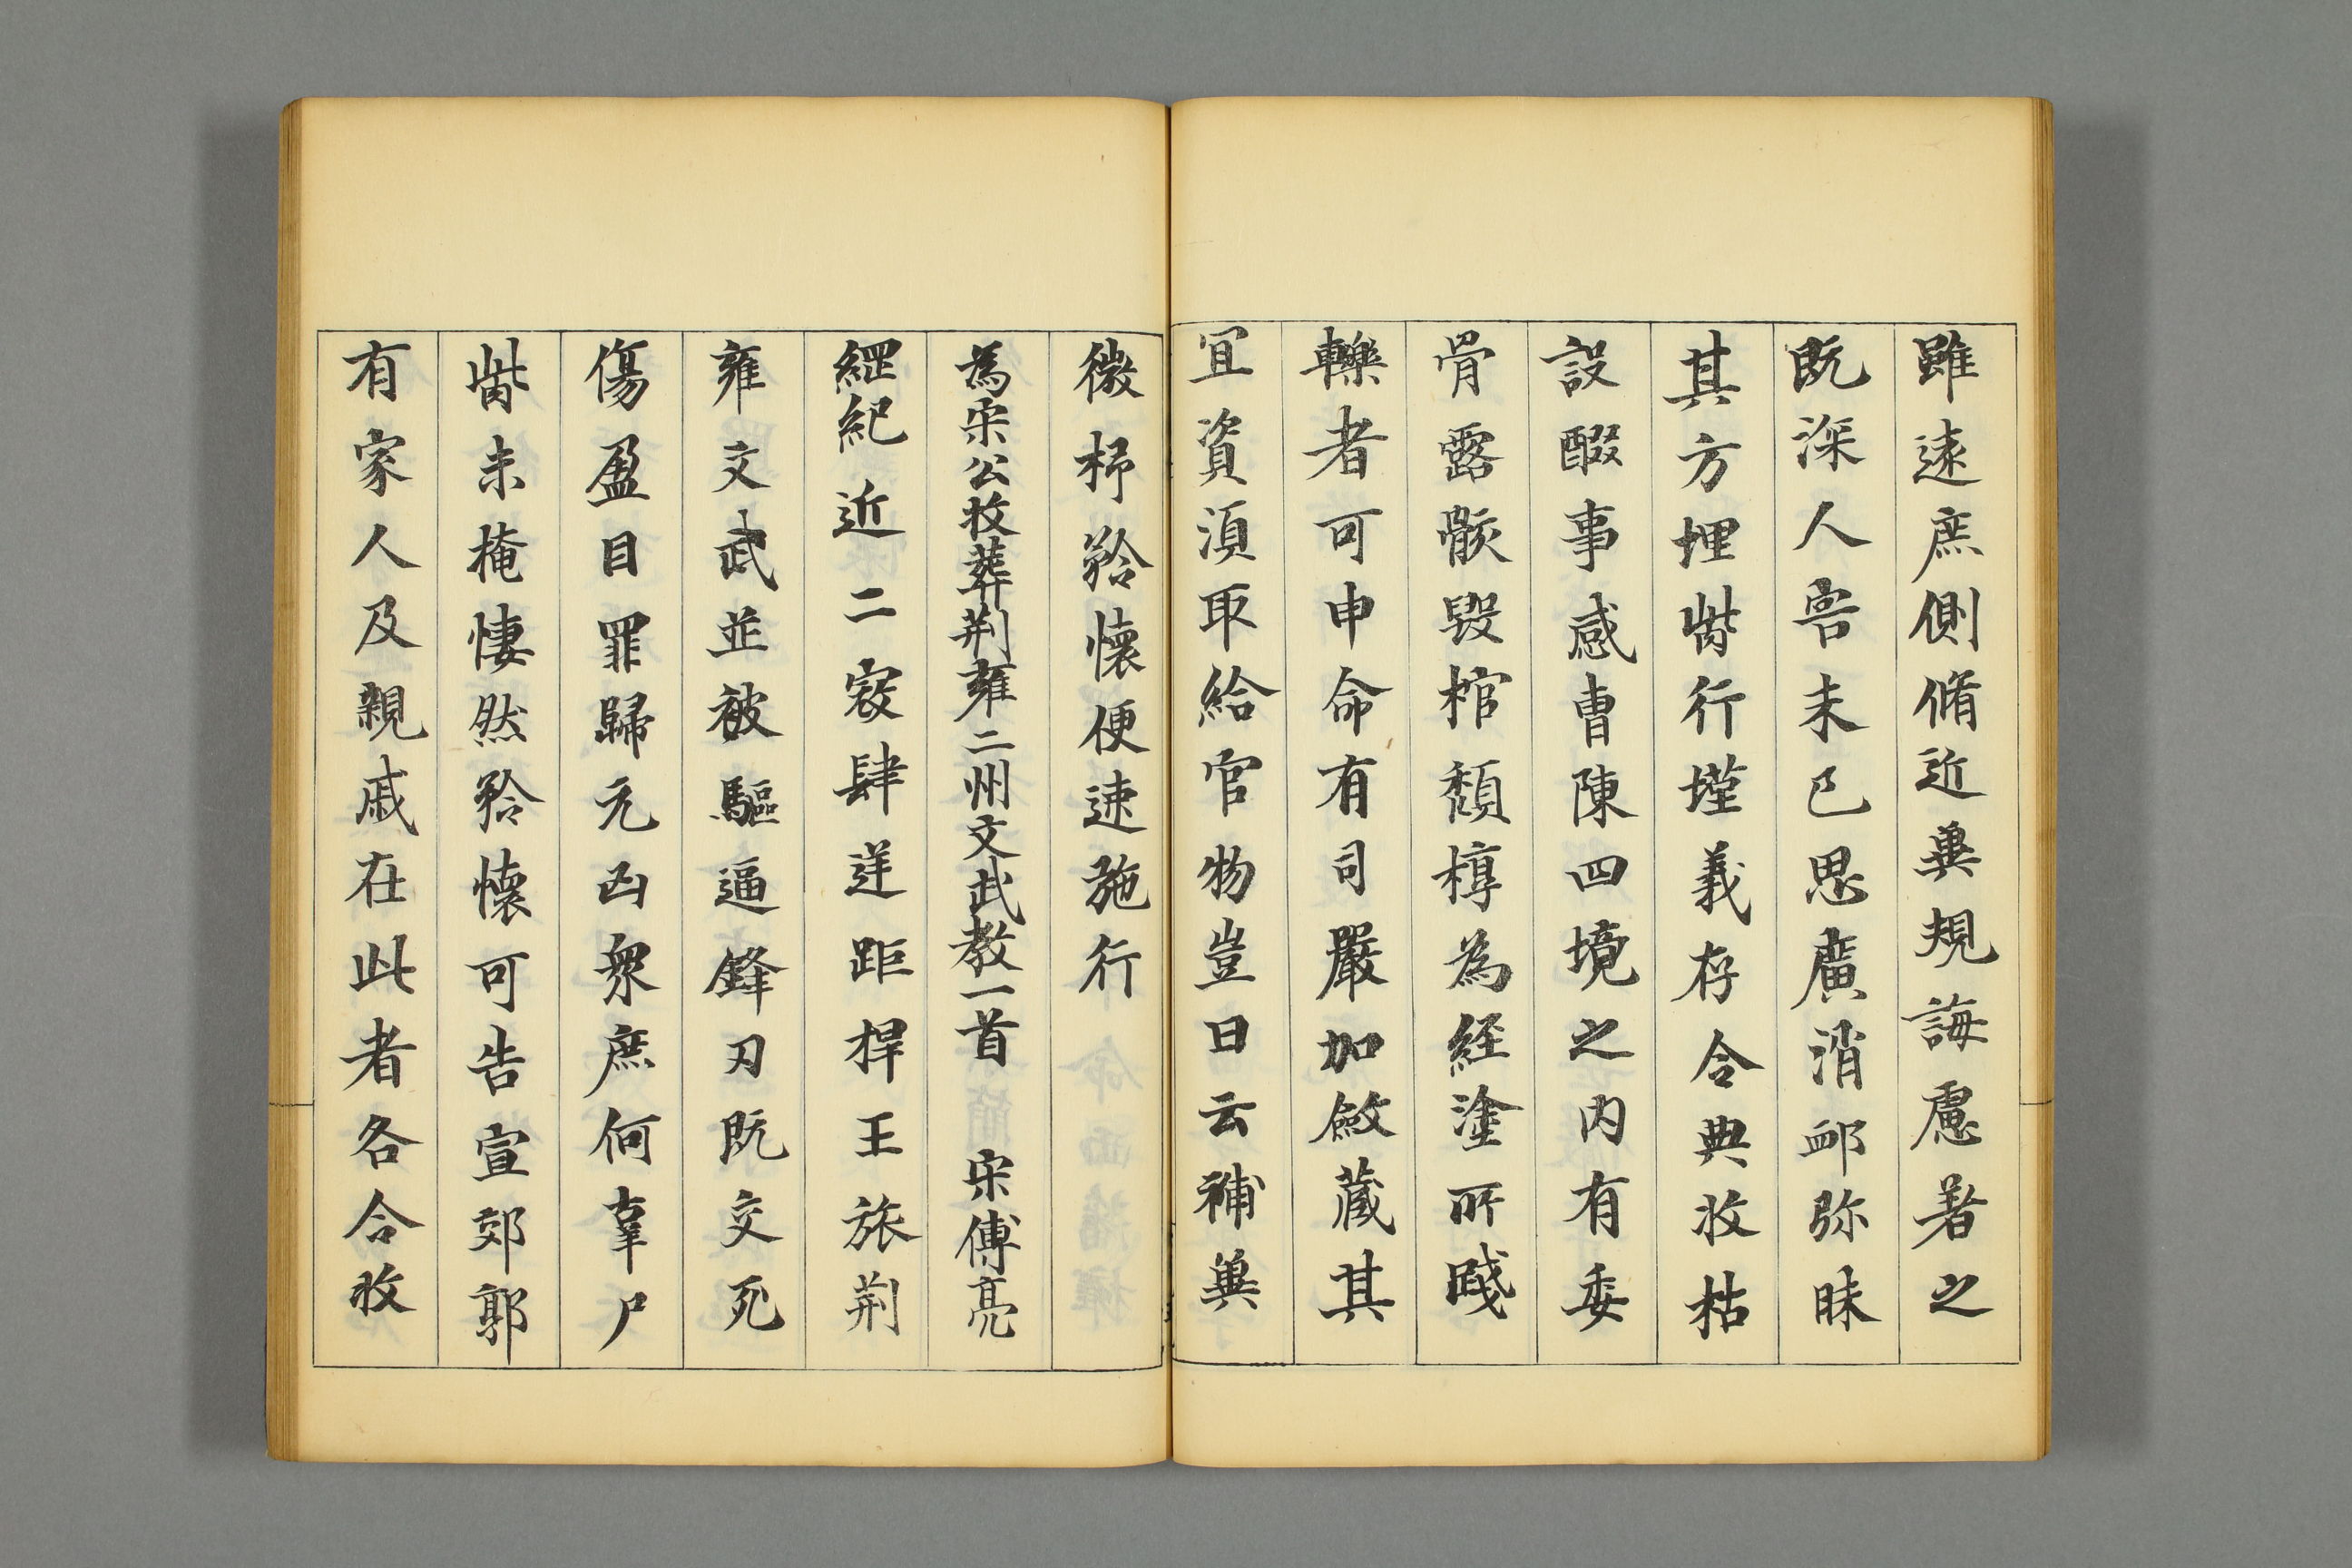 雖遠庶側脩近冀規誨慮著之
既深人害未已思廣消邮弥昧
其方埋胔行墐義存令典收枯
設醊事感曺陳四境之内有委
骨露骸毀棺頽槨為経塗所踐
轢者可申命有司嚴加斂藏其
冝資湏取給官物豈曰云補冀
微棏矜懷便速施行
為宋公收葬荆雍二州文武教一首　宋傅亮
綱紀近二寇肆逆距捍王旅荆
雍文武並被驅逼鋒刃既交死
傷盈目罪歸元凶衆庶何辜尸
胔未掩悽然矜懷可告宣郊郭
有家人及親戚在此者各令收